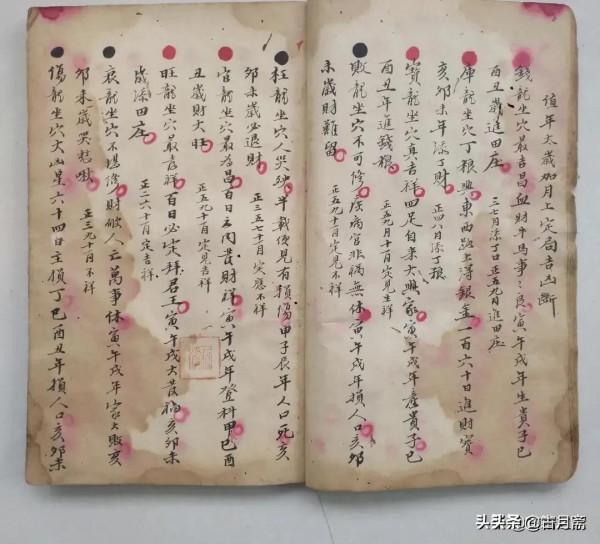 值年太歲如月上定局吉凶斷
錢龍坐穴最吉昌血財牛馬事〻良寅午戌年生貴子巳
酉丑歲進田庄 三七月添丁口正五九月進田庄
庫龍坐穴丁粮興東西路上得銀金一百六十日進財寶
亥卯未年添丁財 正四八月添丁粮
寶龍坐穴真吉祥四足自來大興家寅午戌年產貴子巳
酉丑年進錢粮 正五九十月定見吉祥
敗龍坐穴不可修瘟疾病官非禍無休寅午戌年損人口亥卯
未歲財難留 正五九十月定見不祥
枉龍坐穴人哭啼半載便見有損傷甲子辰年人口死亥
卯未歲必退財 正三五七十一日突應不祥
官龍坐穴最為昌百日之内發財祥寅午戌年登科甲巳酉
丑歲財大旺 正五九十一百定見吉祥
旺龍坐穴最吉祥百日必定拜君王寅午戌大發福亥卯未
歲添田庄 正二六十月定吉祥
衰龍坐穴不堪修財破人亡萬事休寅午戌年家大敗亥
卯未歲哭愁啾 正三九十月不祥
傷龍坐穴大凶星六十四日主損丁巳酉丑年損人口亥卯未
头条 @古月斋